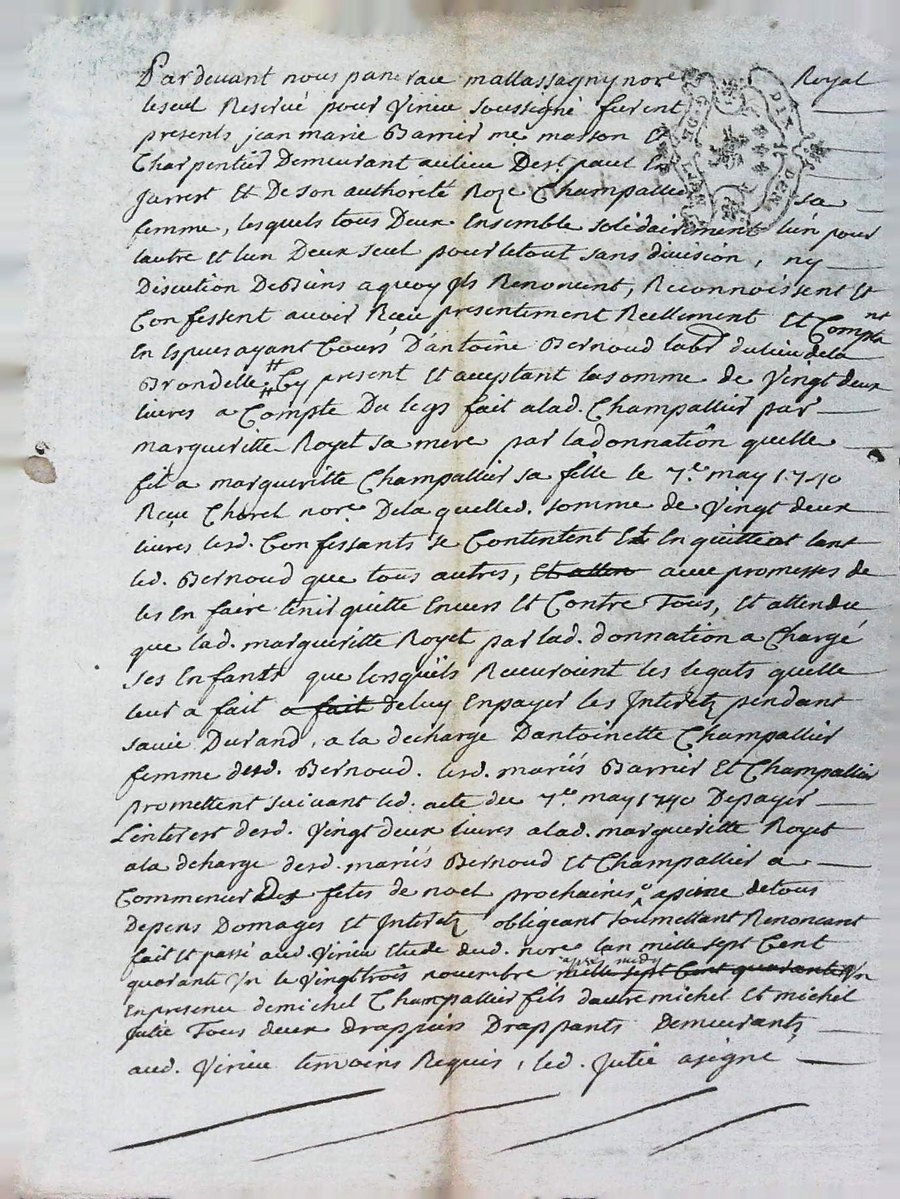 Pardevant nous pancrace mallassagny nore Royal
le seul Reservé pour Virieu soussigné furent
presents jean marie Barrier me masson Et
Charpentier Demeurant au lieu De st. paul En
Jarrest Et De son authorité Roze Champallier sa
femme, lesquels tous Deux Ensemble solidairement lun pour
lautre Et lun Deux seul pour le tout sans division, ny
Discution De Biens a quoy jls Renoncent, Reconnoissent Et
Confessent avoir Receu presentement Reellement Et Compta nt
En Especes ayant Cours D'antoine Bernoud labr du lieu de la
Brondelle # Cy present Et acceptant la somme de Vingt deux
livres a # Compte Du legs fait a lad. Champallier par
margueritte Royet sa mere par la donnation quelle
fit a margueritte Champallier sa fille le 7.e may 1740
Receu Chorel nore De laquelle d. somme de Vingt deux
livres lesd. Confessants se Contentent Et En quittent tant
led. Bernoud que tous autres, avec promesses de
les En faire tenir quitte Envers Et Contre Tous, Et attendu
que lad. margueritte Royet par lad. donnation a Chargé
ses Enfants que lorsquils Recevroient les legats quelle
leur a fait a fait deluy En payer les Interetz pendant
sa vie Durand, a la decharge Dantoinette Champallier
femme dud. Bernoud. lesd. mariés Barrier Et Champallier
promettent suivant led. acte du 7.e may 1740 De payer
L'interest desd. Vingt deux livres a lad. margueritte Royet
a la decharge desd. mariés Bernoud Et Champallier a
Commencer Des fetes de noel prochaines a peine de tous
Depens Domages Et Interetz obligeant soumettant Renoncant
fait Et passé aud. Virieu Etude dud. nore lan mille sept Cent
quarante Vn le Vingt trois novembre apres midy mille sept Cent quarante Vn
En presence de michel Champallier fils dautre michel Et michel
Julie Tous deux drappiers Drappants Demeurants
aud. Virieu temoins Requis, led. Julie a signé